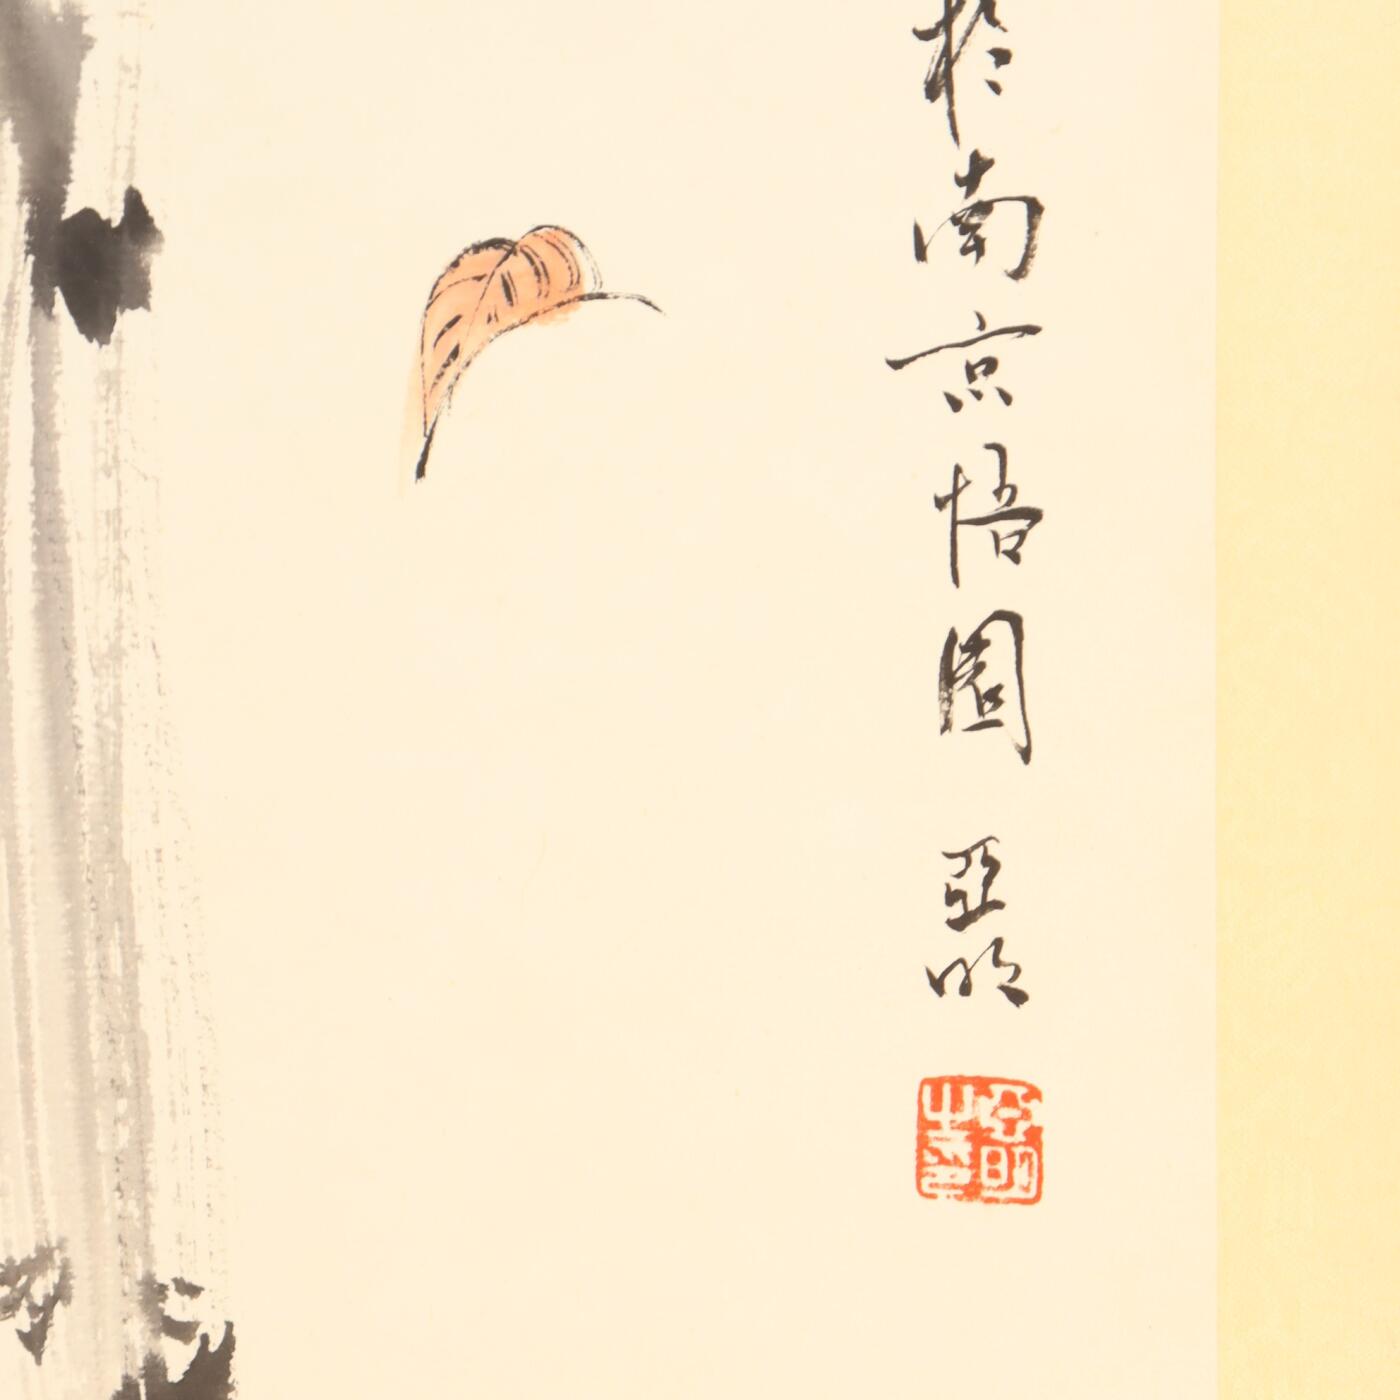 於南京悟園 亞明
亞明之印